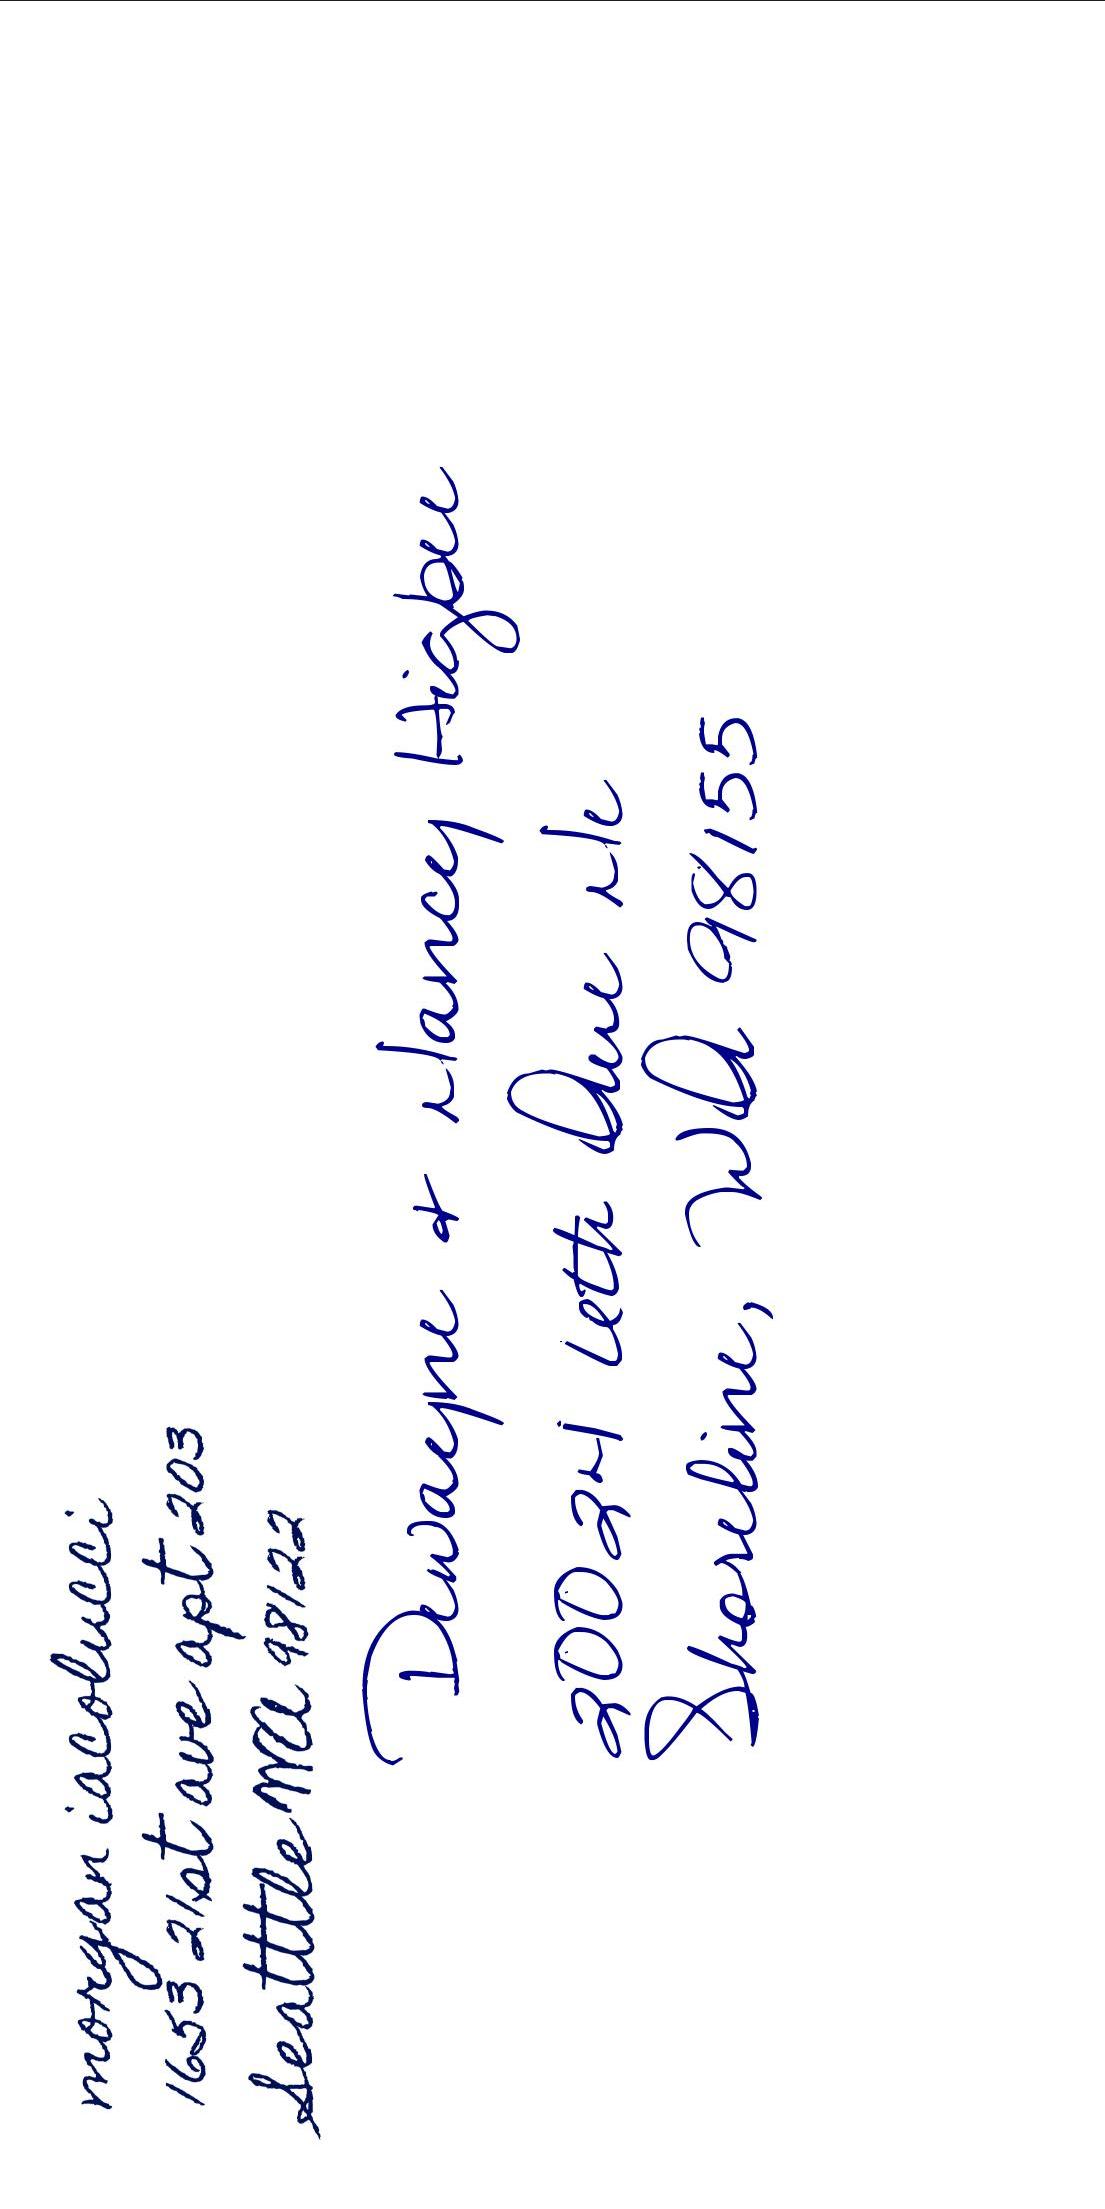 morgan iacolucci
1653 21st ave apt 203
Seattle WA 98122
Dewayne & Nancy Higbee
20024 Ave Ne
Shoreline, WA 98155